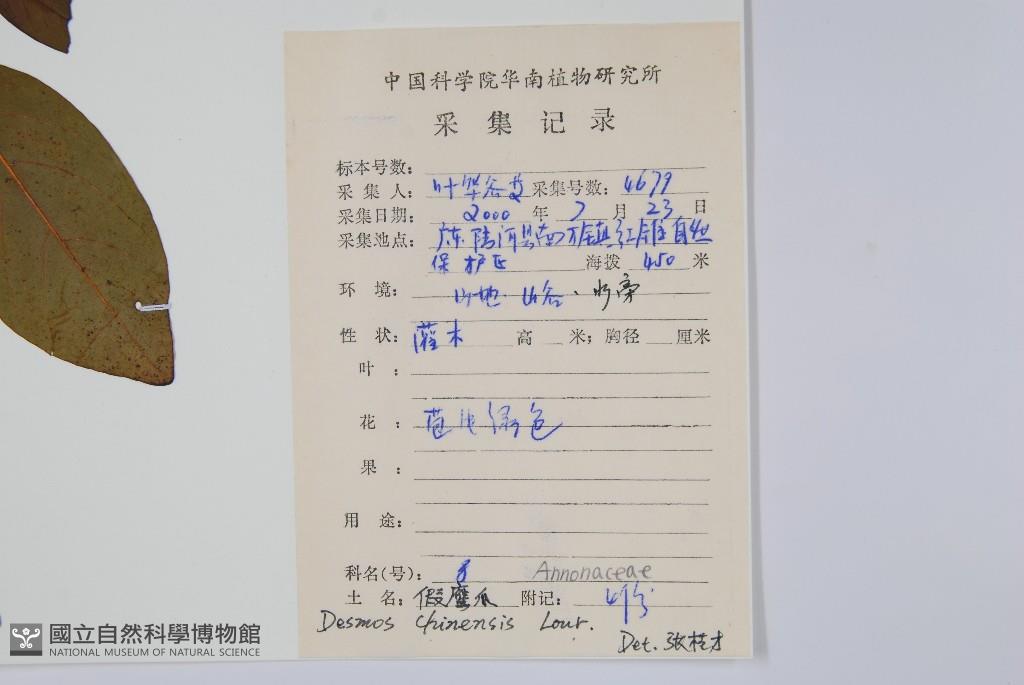 中国科学院华南植物研究所
采集记录
标本号数:
采集人: 叶华谷 采集号数: 4679
采集日期: 2000 年 7 月 23 日
采集池点: 广东陆河县南万镇红锥自然
保护区 海拨 450 米
环境: 山地. 山谷.
性状: 灌木 高 米; 胸径 厘米
叶:
花: 绿色
果:
用途:
科名(号): 8 Annonaceae
土名: 假鹰爪 附记: 4份
Desmos chinensis Lour.
Det. 张桂才
國立自然科學博物館
NATIONAL MUSEUM OF NATURAL SCIENCE